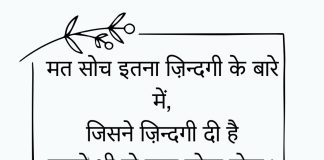 मत सोच इतना ज़िन्दगी के बारे
में,
जिसने ज़िन्दगी दी है